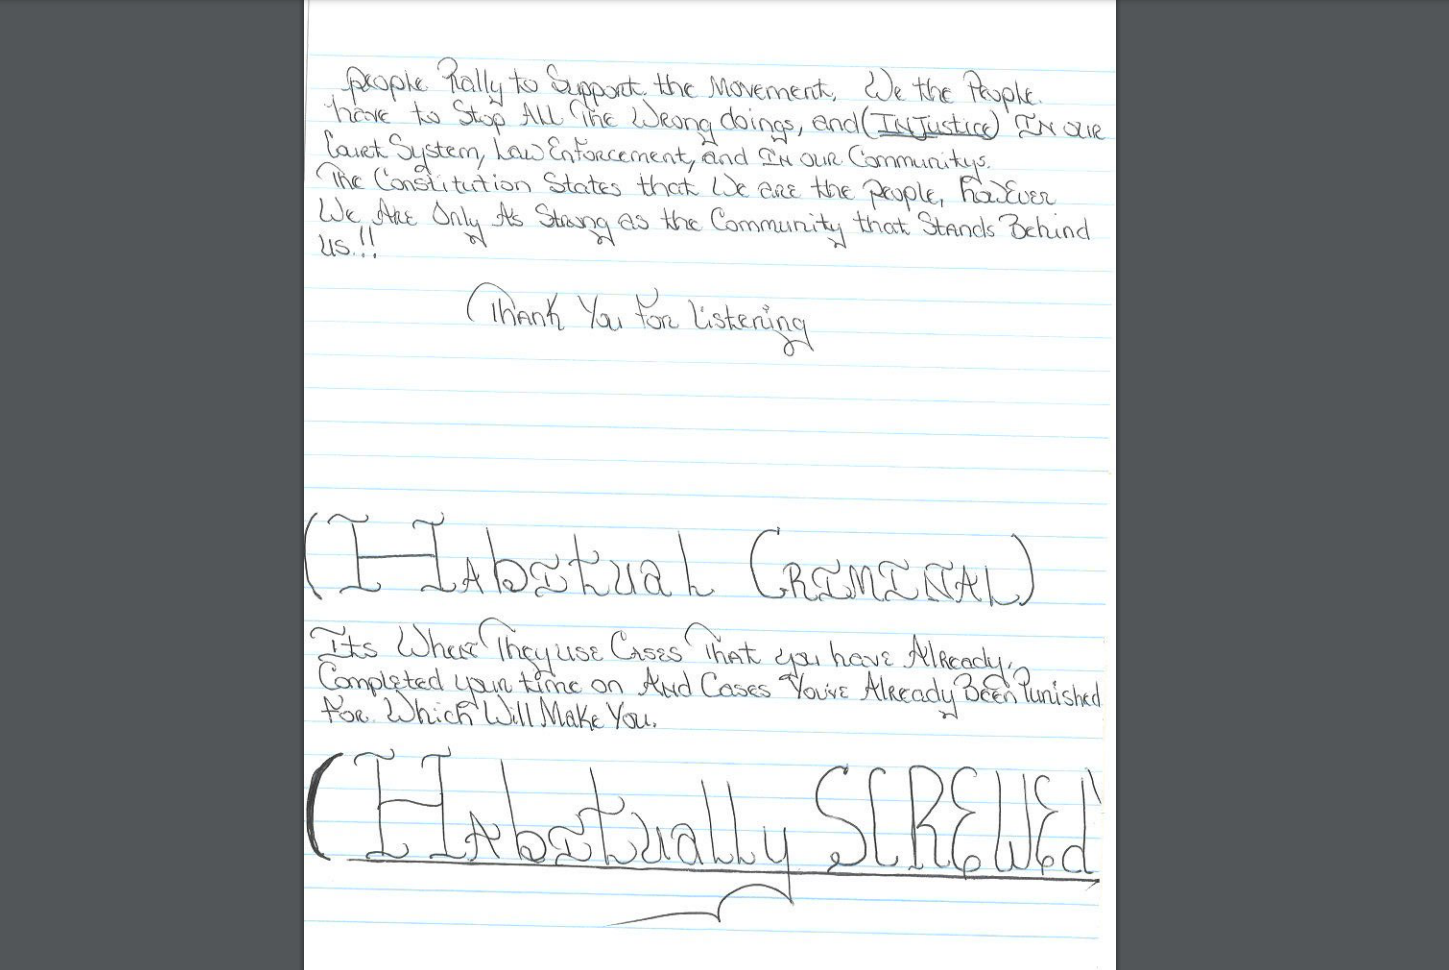 people Rally to Support the Movement. We the People
have to Stop All The Wrong doings, and (INJustice) IN OUR
Court System, Law Enforcement, and IN OUR Communitys.
The Constitution States that We are the people, However
We Are Only As Strong as the Community that Stands Behind
us.!!
Thank You For Listening
(HAbITual CRIMINAL)
Its Where They use Cases That you have Already
Completed your time on And Cases You've Already Been Punished
for Which Will Make You.
(HAbITually SCREWEd